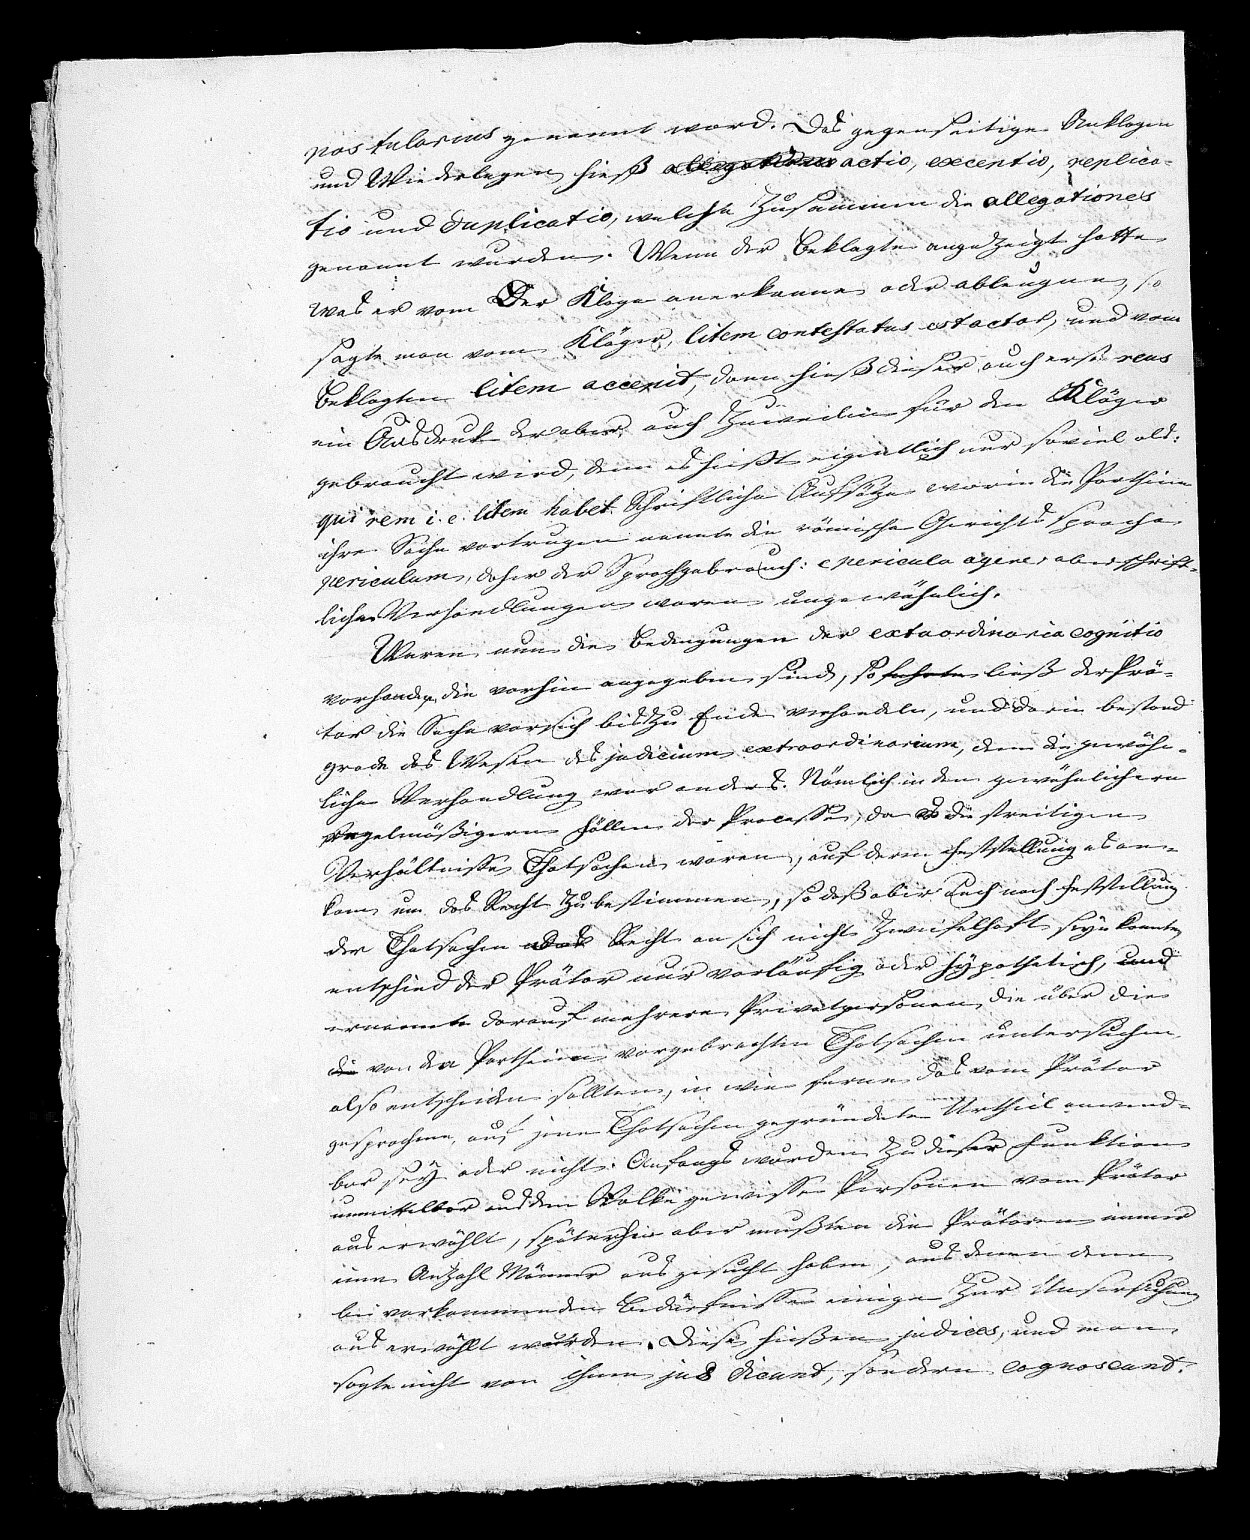 postularius genannt ward. Das gegenseitige Anklagen
und Wiederlegen hieß allegationes actio, excentio, replica-
tio und duplicatio, welche zusammen die allegationes
genannt wurden. Wenn der Beklagte angezeigt hatte
was er vom Der Klage anerkenne oder ableugne, so
sagte man vom Kläger, litem contestatus est actor, und vom
Beklagten litem accepit, dann hieß dieser auch erst reus
ein Ausdruck der aber auch zuweilen für den Kläger
gebraucht wird, denn es heißt eigentlich nur soviel als:
qui rem i. e. litem habet. Schriftliche Aufsätze worin die Partheien
ihre Sache vortrugen nannte die römische Gerichtssprache
periculum, daher der Sprachgebrauch: e pericula agere, aber schrift-
liche Verhandlungen waren ungewöhnlich.
Waren nun die Bedingungen der extaordinaria cognitio
vorhanden, die vorhin angegeben sind, so fuhrte ließ der Prä-
tor die Sache vor sich bis zu Ende verhandeln, und darin bestand
grade das Wesen des judicium extraordinarium, denn die gewöhn-
liche Verhandlung war anders. Nämlich in den gewöhnlichern
regelmäßigern Fällen der Processe, da es die streitigen
Verhältnisse Thatsachen waren, auf deren Feststellung es an-
kam um das Recht zu bestimmen, so daß aber auch nach Feststellung
der Thatsachen das Recht an sich nicht zweifelhaft seyn konnte,
entschied der Prätor nur vorläufig oder hypothetisch, und
ernannte darauf mehrere Privatpersonen, die über die
die von den Partheien vorgebrachten Thatsachen untersuchen
also entscheiden sollten, in wie ferne das vom Prätor
gesprochene, auf jene Thatsachen gegründete Urtheil anwend-
bar sey oder nicht. Anfangs wurden zu dieser Funktion
unmittelbar aus dem Volke gewisse Personen vom Prätor
auserwählt, späterhin aber mußten die Prätoren immer
eine Anzahl Männer ausgesucht haben, aus denen dann
bei vorkommenden Bedürfnissen einige zur Untersuchung
auserwählt wurden. Diese hießen judices, und man
sagte nicht von ihnen jus dicunt, sondern cognoscunt.